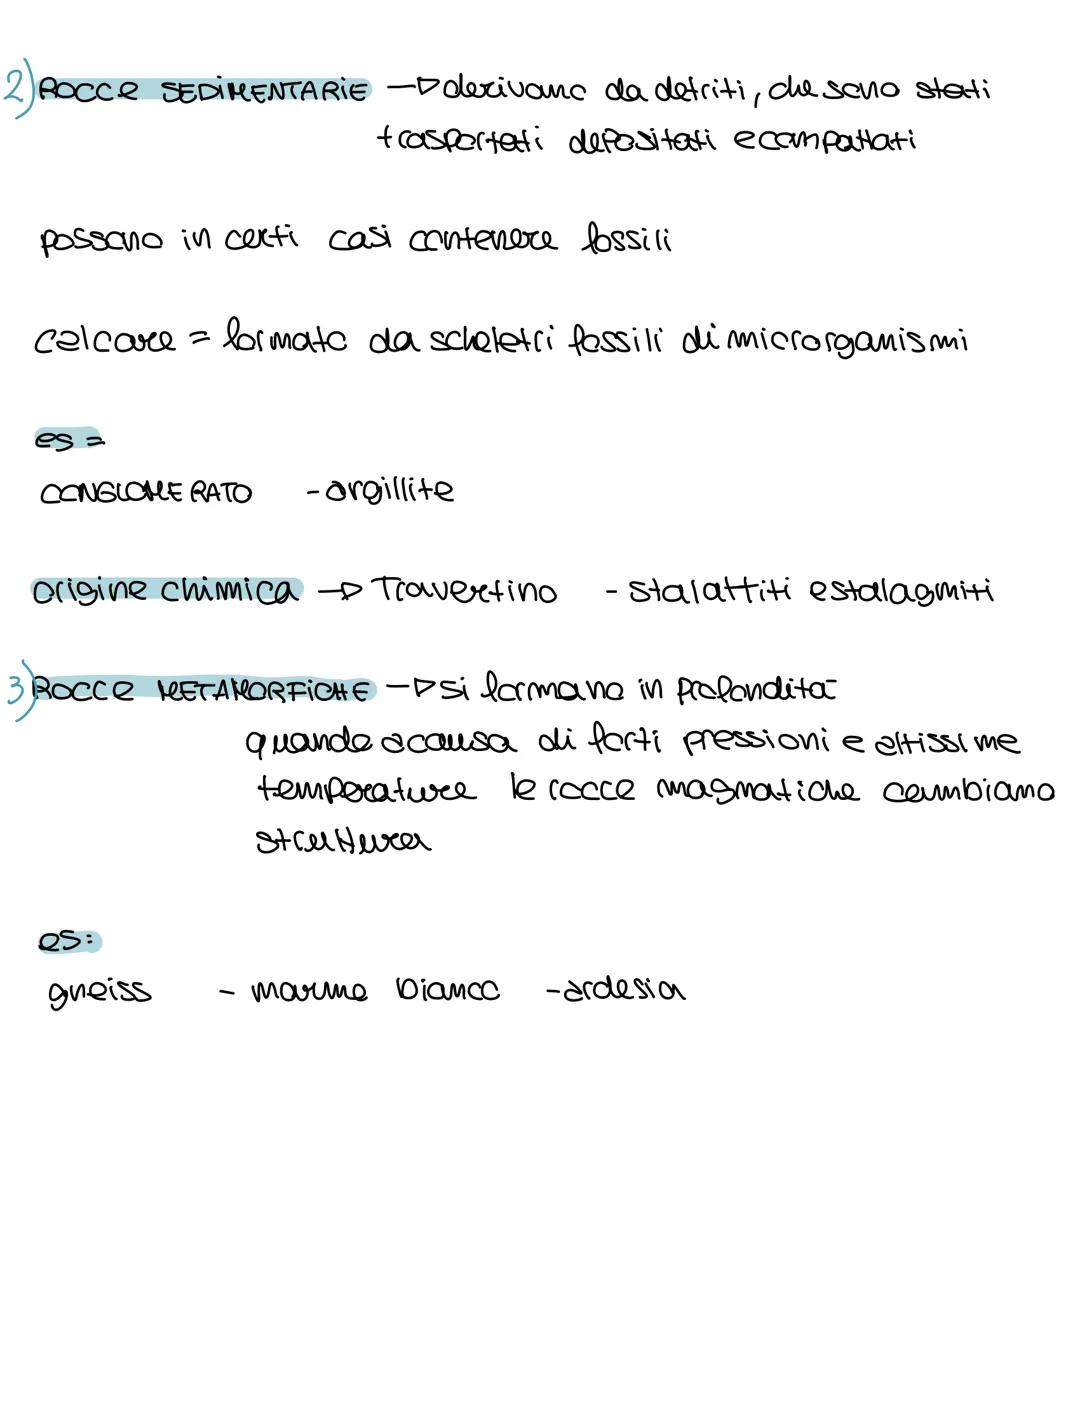 2) ROCCE SEDIMENTARIE → derivano da detriti, che sono stati
trasportati depositati e compattati
possono in certi casi contenere fossili
calcare = formato da scheletri fossili di microrganismi
es =
CONGLOMERATO - argillite
origine chimica → Travertino - stalattiti e stalagmiti
3) ROCCE METAMORFICHE → si formano in profondità
quando a causa di forti pressioni e altissime
temperature le rocce magmatiche cambiano
struttura
es:
gneiss - marmo bianco - ardesia